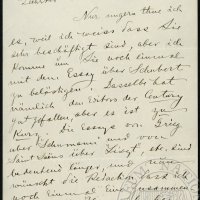 Nur ungern thue ich
es, weil ich weiss dass Sie
sehr beschäftigt sind, aber ich
komme um Sie noch einmal
mit dem Essay über Schubert
zu belästigen. Dasselbe hat
nämlich dem Editor der Century
gut gefallen, aber es ist zu
kurz. Die Essays von Grieg
über Schumann und von
Saint-Saëns über Liszt, etc. sind
bedeutend länger, und nun
wünscht die Redaction dass ich
noch einmal